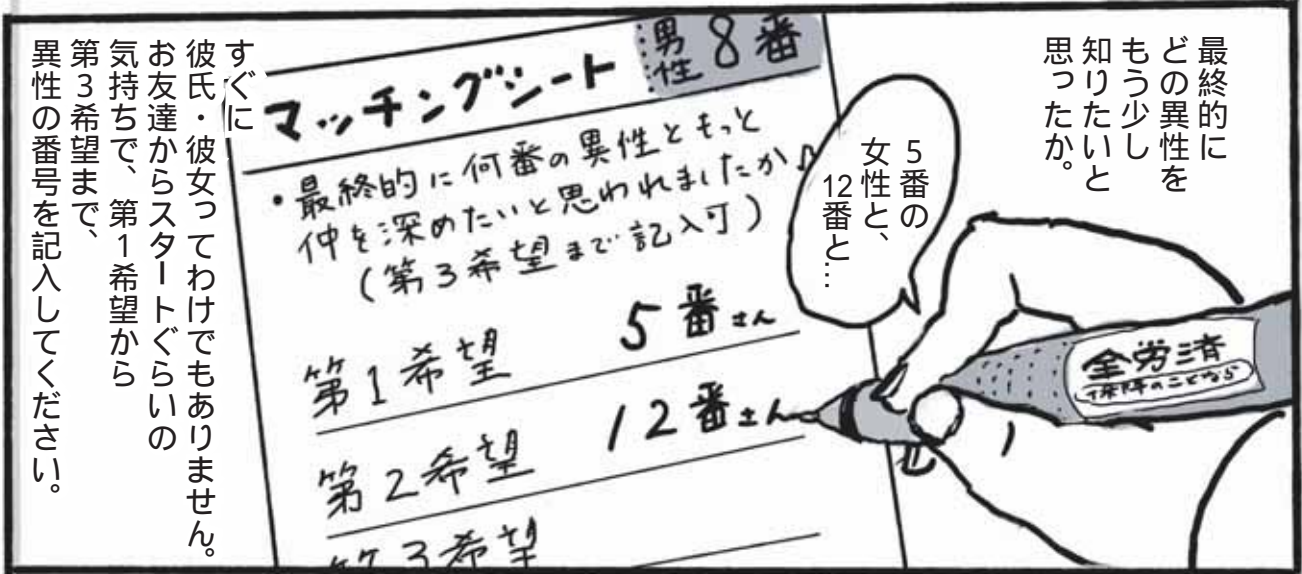 最終的に
どの異性を
もう少し
知りたいと
思ったか。
5番の
女性と、
12番と…
マッチングシート
男性8番
・最終的に何番の異性ともっと
仲を深めたいと思われましたか♪
(第3希望まで記入可)
第1希望 5番さん
第2希望 12番さん
第3希望
全労済
保障のことなら
すぐに
彼氏・彼女ってわけでもありません。
お友達からスタートぐらいの
気持ちで、第1希望から
第3希望まで、
異性の番号を記入してください。